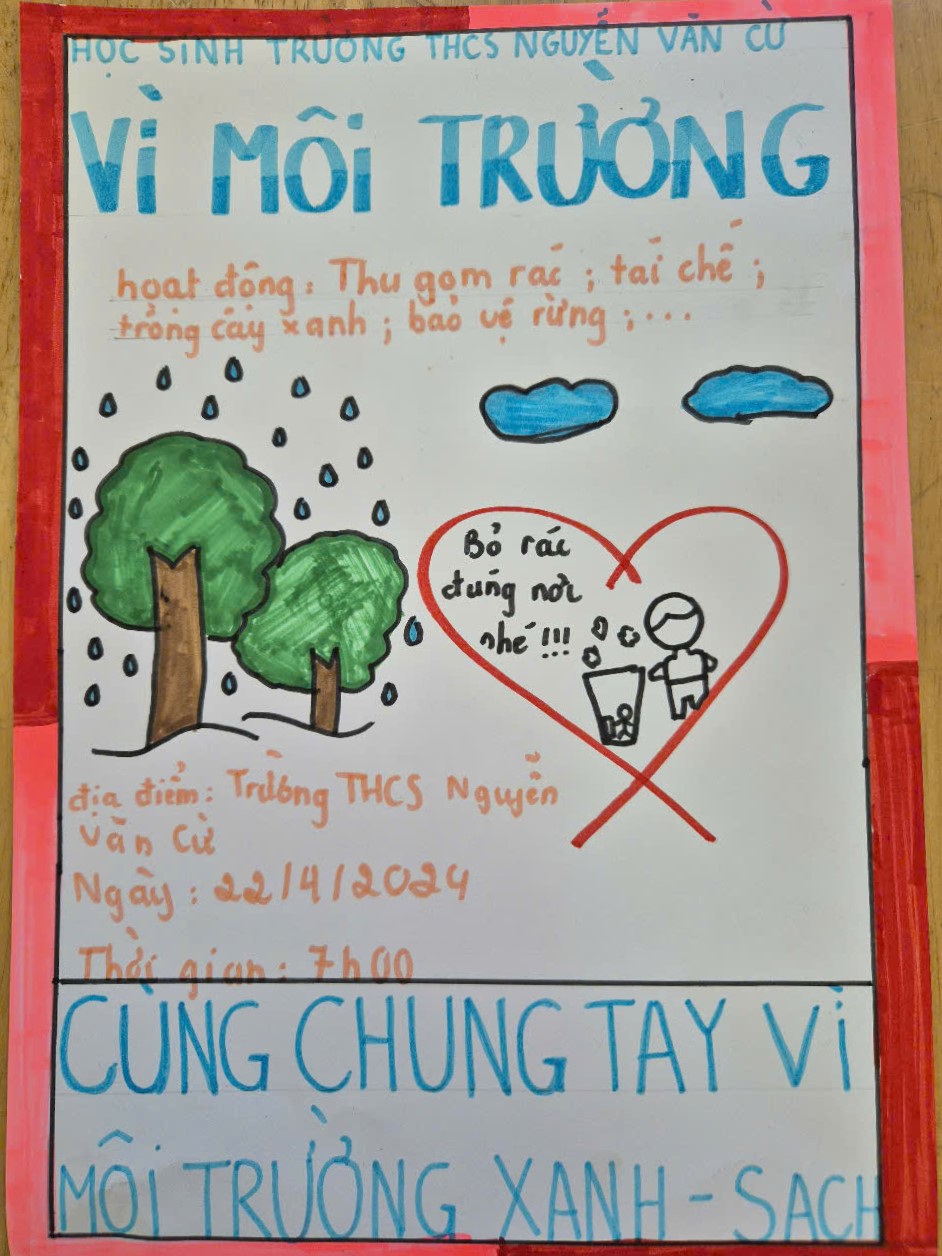 HỌC SINH TRƯỜNG THCS NGUYỄN VĂN CỪ
VÌ MÔI TRƯỜNG
hoạt động: Thu gom rác ; tái chế ;
trồng cây xanh ; bảo vệ rừng ; ...
Bỏ rác
đúng nơi
nhé !!!
địa điểm: Trường THCS Nguyễn
Văn Cừ
Ngày : 22/4/2024
Thời gian : 7h00
CÙNG CHUNG TAY VÌ
MÔI TRƯỜNG XANH - SẠCH